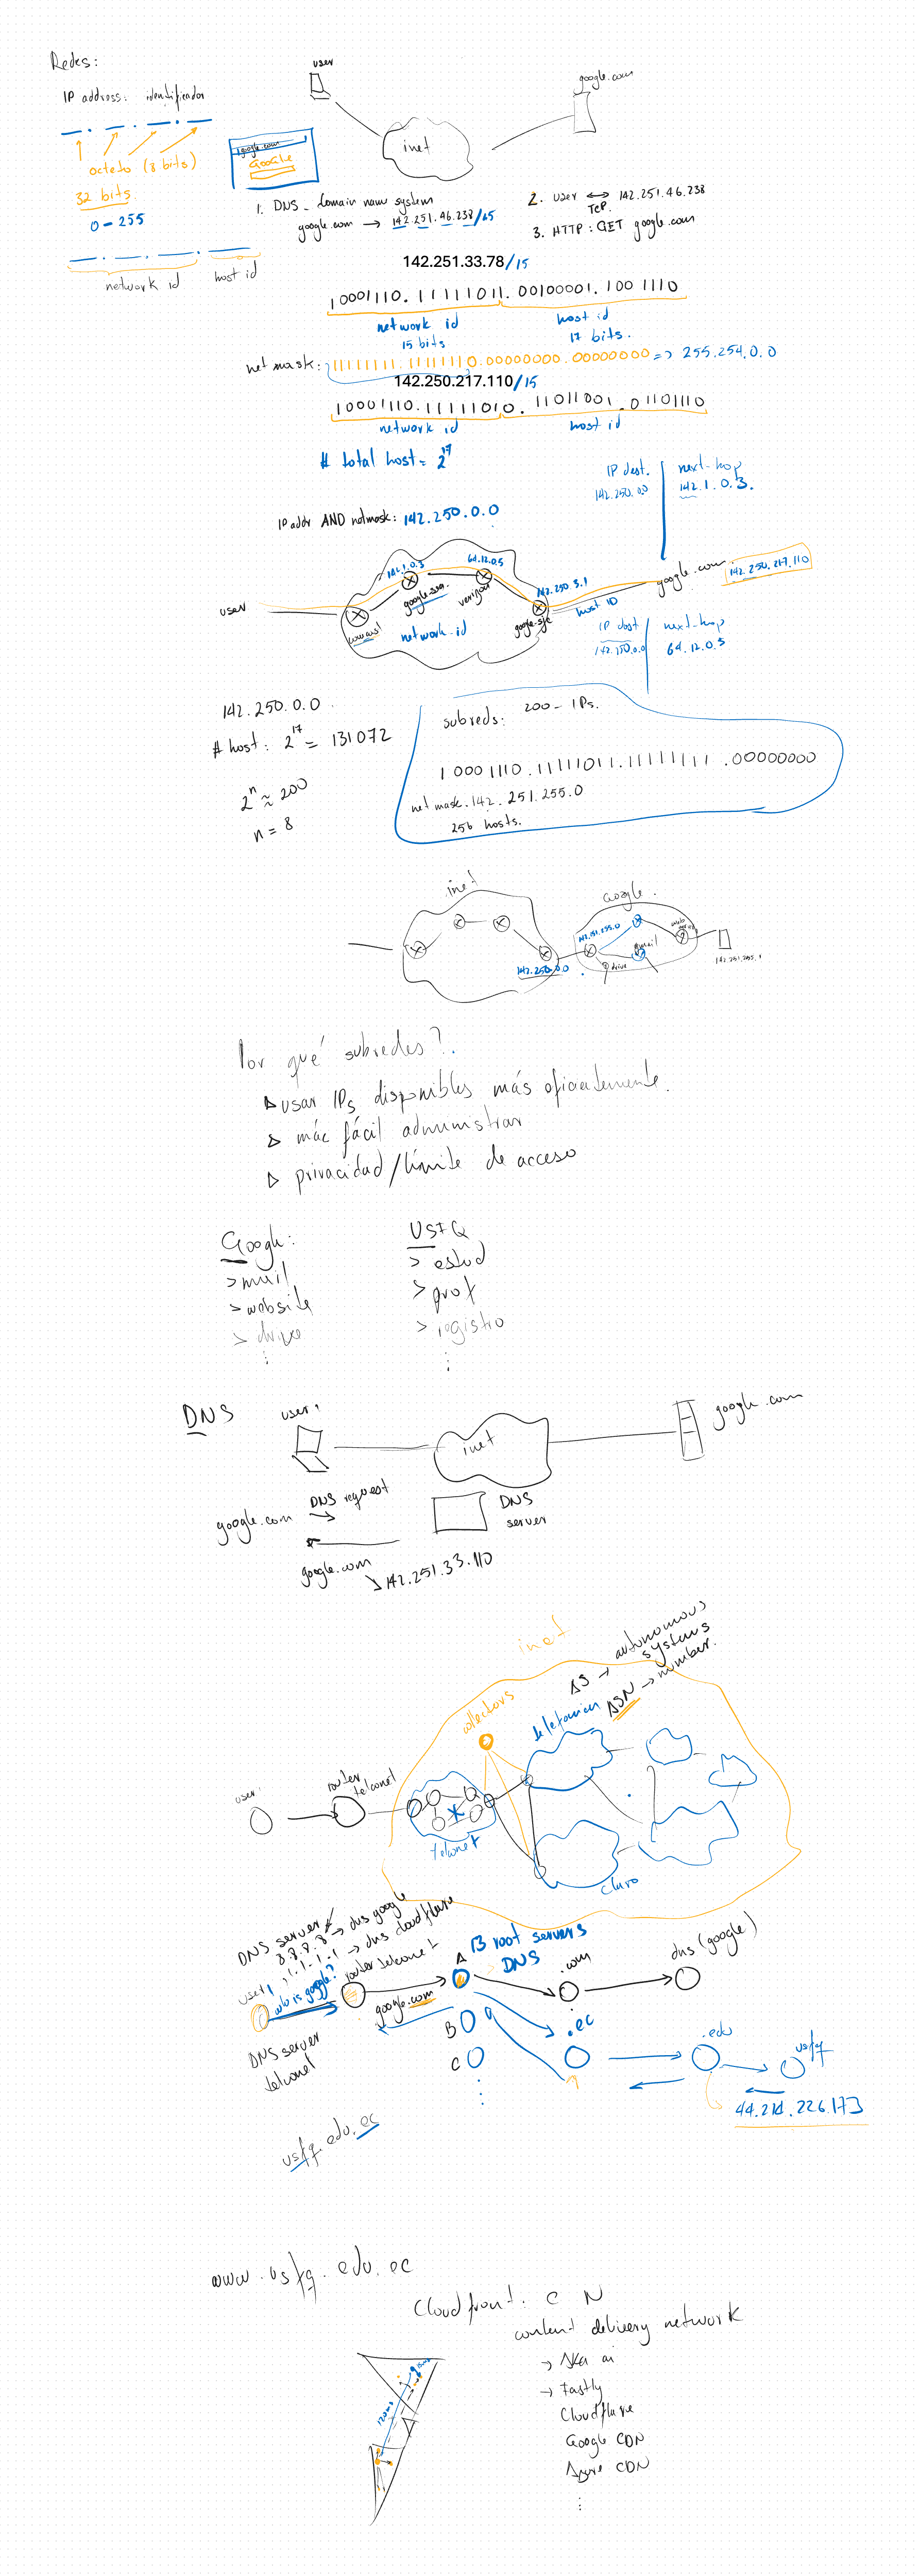 Redes:
IP address: identificador
octeto (8 bits)
32 bits
0-255
network id
host id
user
google.com
inet
google.com
GOOGLE
1. DNS - domain name system
google.com → 142.251.46.238/15
2. user ↔ 142.251.46.238
TCP.
3. HTTP: GET google.com
142.251.33.78/15
10001110.11111011.00100001.1001110
network id
15 bits
host id
17 bits.
net mask: 11111111.11111110.00000000.00000000 => 255.254.0.0
142.250.217.110/15
10001110.11111010.11011001.01101110
network id
host id
# total host = 2^17
IP dest.
next-hop
142.250.0.0
142.1.0.3.
IP addr AND netmask: 142.250.0.0
142.1.0.3
64.12.0.5
142.250.3.1
google.com
142.250.217.110
user
verizon
network-id
host ID
IP dest
next-hop
142.250.0.0
64.12.0.5
142.250.0.0
# host: 2^17 = 131072
2^n ≈ 200
n = 8
subreds: 200 - IPs.
10001110.11111011.11111111.00000000
net mask.142.251.255.0
256 hosts.
inet
Google.
142.251.255.0
142.250.0.0
drive
142.251.255.1
Por qué subredes?.
▷ usar IPs disponibles más eficientemente.
▷ más fácil administrar
▷ privacidad/límite de acceso
Google:
> mail
> website
> drive
⋮
USFQ
> estud
> prof
> registro
⋮
DNS
user 1
inet
google.com
DNS request
google.com →
DNS
server
google.com
↘ 142.251.33.110
inet
AS → autonomous
systems
ASN → number.
collectors
telefonica
user
router
telconet
telconet
claro
DNS server
8.8.8.8 → dns google
1.1.1.1 → dns cloudflare
user 1
who is google?
router telconet
A
13 root servers
DNS
.com
dns (google)
google.com
B
C
⋮
.ec
.edu
usfq
44.214.226.173
DNS server
telconet
usfq.edu.ec
www.usfq.edu.ec
Cloudfront: C N
content delivery network
→ Akamai
→ Fastly
Cloudflare
Google CDN
Azure CDN
⋮
120ms